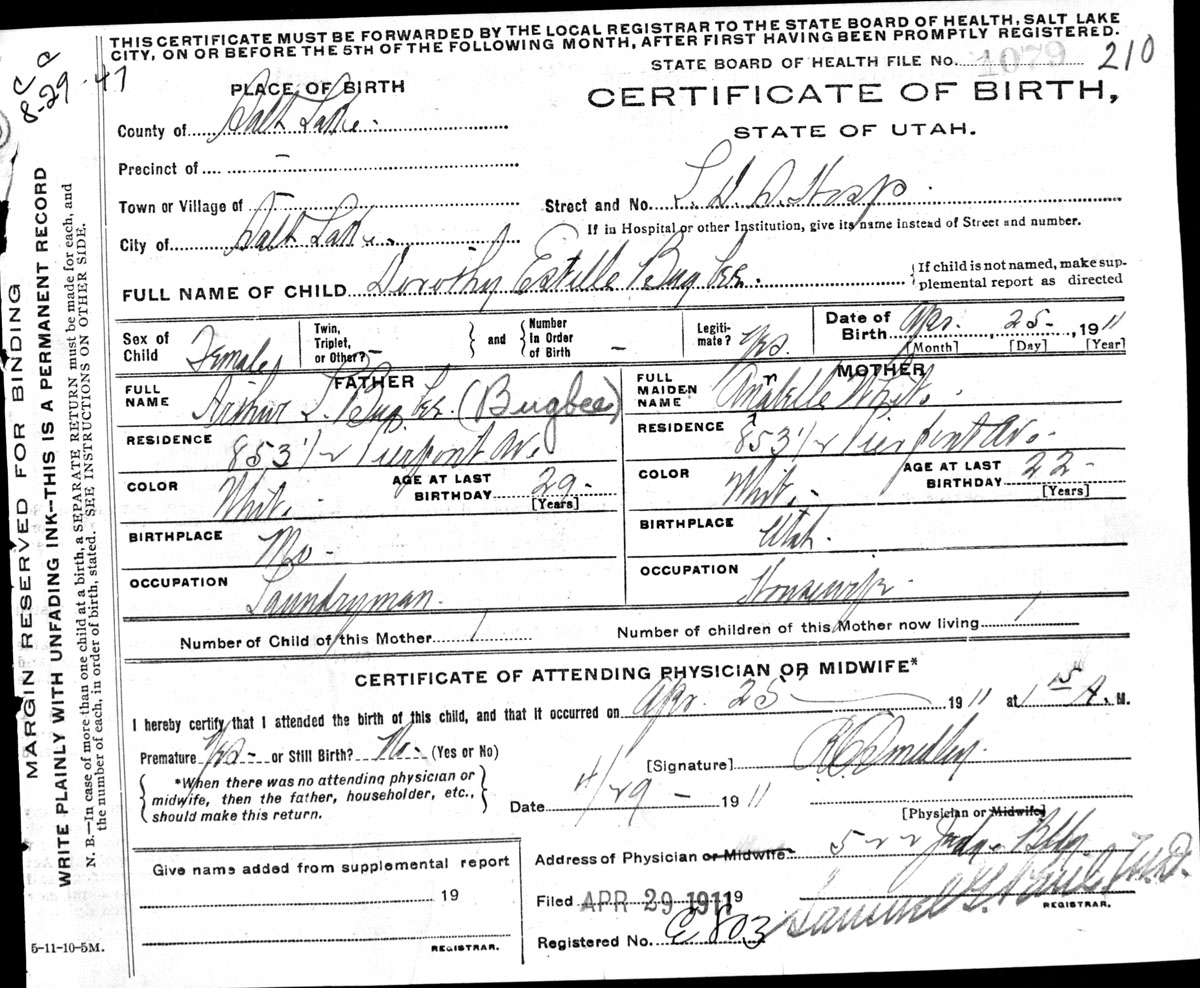 THIS CERTIFICATE MUST BE FORWARDED BY THE LOCAL REGISTRAR TO THE STATE BOARD OF HEALTH, SALT LAKE
CITY, ON OR BEFORE THE 5TH OF THE FOLLOWING MONTH, AFTER FIRST HAVING BEEN PROMPTLY REGISTERED.
STATE BOARD OF HEALTH FILE No. 1079 210
8-29-47
PLACE OF BIRTH
CERTIFICATE OF BIRTH,
STATE OF UTAH.
County of Salt Lake.
Precinct of –
Town or Village of –
Street and No. L. D. S. Hosp.
If in Hospital or other Institution, give its name instead of Street and number.
City of Salt Lake.
FULL NAME OF CHILD Dorothy Estelle Bug bee.
If child is not named, make sup-
plemental report as directed
Sex of Child Female
Twin, Triplet, or Other? – and Number in Order of Birth –
Legiti-mate? Yes.
Date of Birth Apr. 25-, 1911
[Month] [Day] [Year]
FATHER
MOTHER
FULL NAME Arthur L. Bug bee. (Bugbee)
FULL MAIDEN NAME Anabelle White.
RESIDENCE 853 1/2 Pierpont Av.
RESIDENCE 853 1/2 Pierpont Av.
COLOR White.
AGE AT LAST BIRTHDAY 29- [Years]
COLOR White.
AGE AT LAST BIRTHDAY 22- [Years]
BIRTHPLACE Mo-
BIRTHPLACE Utah.
OCCUPATION Laundryman.
OCCUPATION Housewife.
Number of Child of this Mother 1
Number of children of this Mother now living 1
CERTIFICATE OF ATTENDING PHYSICIAN OR MIDWIFE*
I hereby certify that I attended the birth of this child, and that it occurred on Apr. 25 1911 at 1 15 A. M.
Premature Yes- or Still Birth? No- (Yes or No)
[Signature]
*When there was no attending physician or
midwife, then the father, householder, etc.,
should make this return.
Date 4/29 - 1911
[Physician or Midwife]
Address of Physician or Midwife 522 Judge Bldg.
Give name added from supplemental report
19
REGISTRAR.
Filed APR 29 1911 19
Samuel G. Paul, M.D.
REGISTRAR.
Registered No. E 803
5-11-10-5M.
MARGIN RESERVED FOR BINDING
WRITE PLAINLY WITH UNFADING INK—THIS IS A PERMANENT RECORD
N. B.—In case of more than one child at a birth, a SEPARATE RETURN must be made for each, and
the number of each, in order of birth, stated. SEE INSTRUCTIONS ON OTHER SIDE.